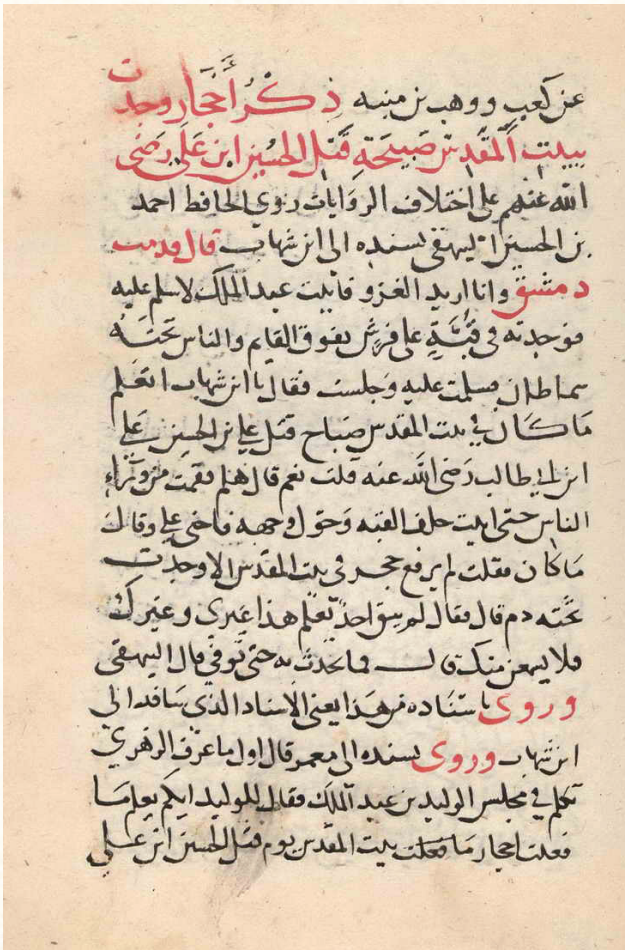 عن كعب ووهب بن منبه ذكر أحجار وجدت
ببيت المقدس صبيحة قتل الحسين ابن علي رضي
الله عنهم على اختلاف الروايات روى الحافظ احمد
بن الحسين البيهقي بسنده الى ابن شهاب قال قدمت
دمشق وانا اريد الغزو فاتيت عبد الملك لاسلم عليه
فوجدته في قبة على فرش يفوق القايم والناس تحته
سماطان فسلمت عليه وجلست فقال يا ابن شهاب اتعلم
ما كان في بيت المقدس صباح قتل علي بن الحسين علي
ابن ابي طالب رضي الله عنه قلت نعم قال هلم فقمت من وراء
الناس حتى اتيت خلف القبه وحول وجهه فاحنى علي وقال
ما كان فقلت لم يرفع حجر في بيت المقدس الا وجدت
تحته دم قال فقال لم يبق احد تعلم هذا غيرى وغيرك
فلا يسمعن منك قال فما تحدث به حتى توفي قال البيهقي
وروى باسناده من هذا يعني الاسناد الذي ساقه الى
ابن شهاب وروى بسنده الى معمر قال اول ما عرف الزهري
تكلم في مجلس الوليد بن عبد الملك فقال الوليد ايكم يعلم ما
فعلت احجار بيت المقدس يوم قتل الحسين ابن علي